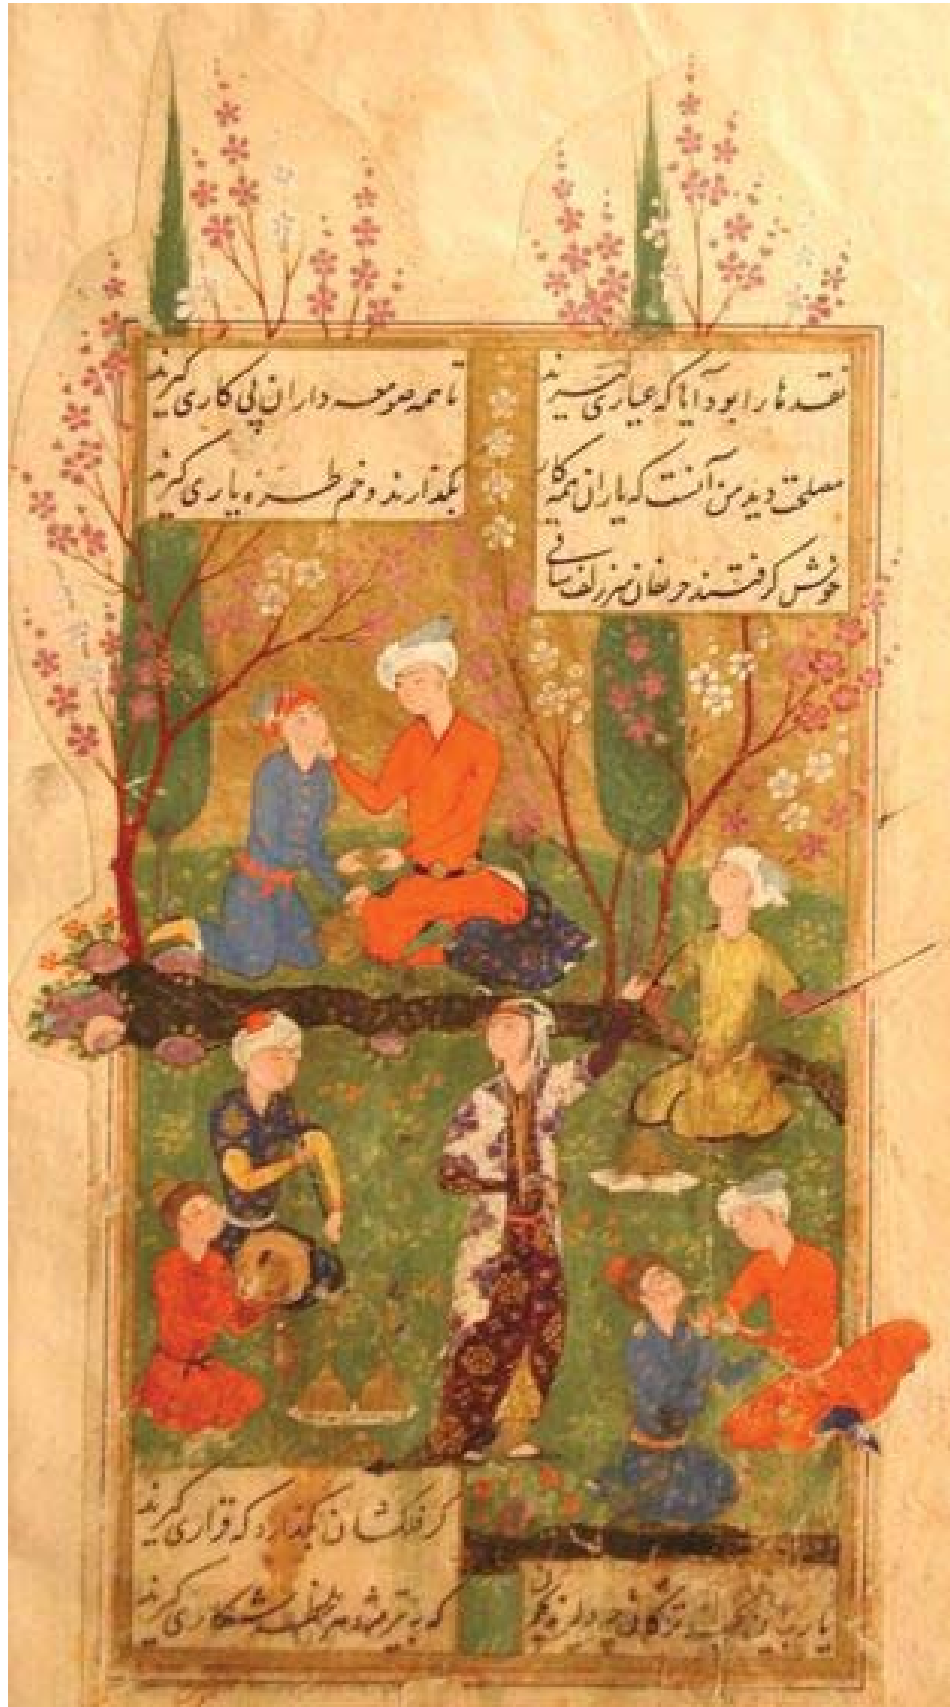 نقدها را بود آیا که عیاری گیرند
تا همه صومعه داران پی کاری گیرند
مصلحت دید من آنست که یاران همه کار
بگذارند و خم طره یاری گیرند
خوش گرفتند حریفان سر زلف ساقی
گر فلکشان بگذارد که قراری گیرند
یارب این بچه ترکان چه دلیرند
که به تیر مژه هر لحظه شکاری گیرند